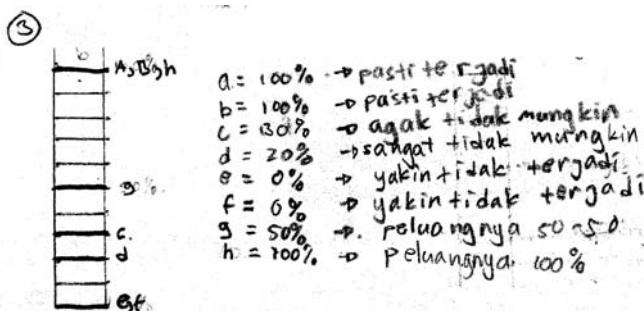 3
A, B, g, h
g
c.
d
e, f
a = 100% → pasti terjadi
b = 100% → pasti terjadi
c = 30% → agak tidak mungkin
d = 20% → sangat tidak mungkin
e = 0% → yakin tidak terjadi
f = 0% → yakin tidak terjadi
g = 50% → peluangnya 50-50
h = 100% → peluangnya 100%